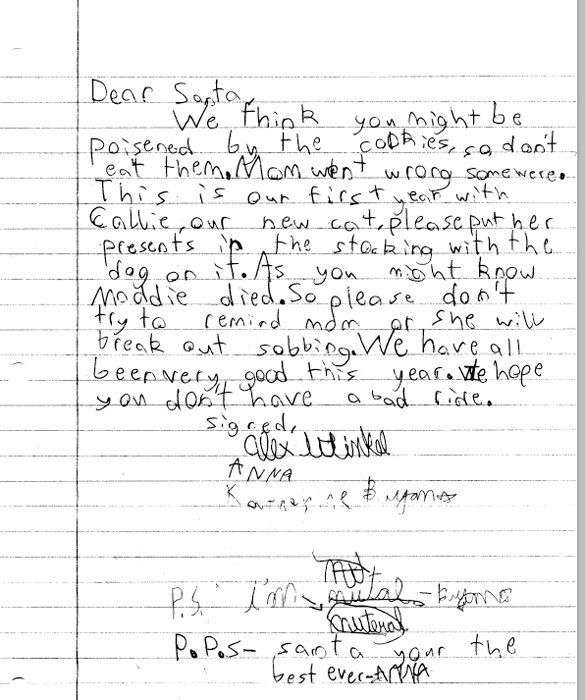 Dear Santa,
We think you might be
poisened by the cookies, so don't
eat them. Mom went wrong somewere.
This is our first year with
Callie, our new cat, please put her
presents in the stocking with the
dog on it. As you might know
Maddie died. So please don't
try to remind mom or she will
break out sobbing. We have all
been very good this year. We hope
you don't have a bad ride.
signed,
Alex Winkel
ANNA
P.S. i'm
nuteral
P.P.S- santa your the
best ever-ANNA